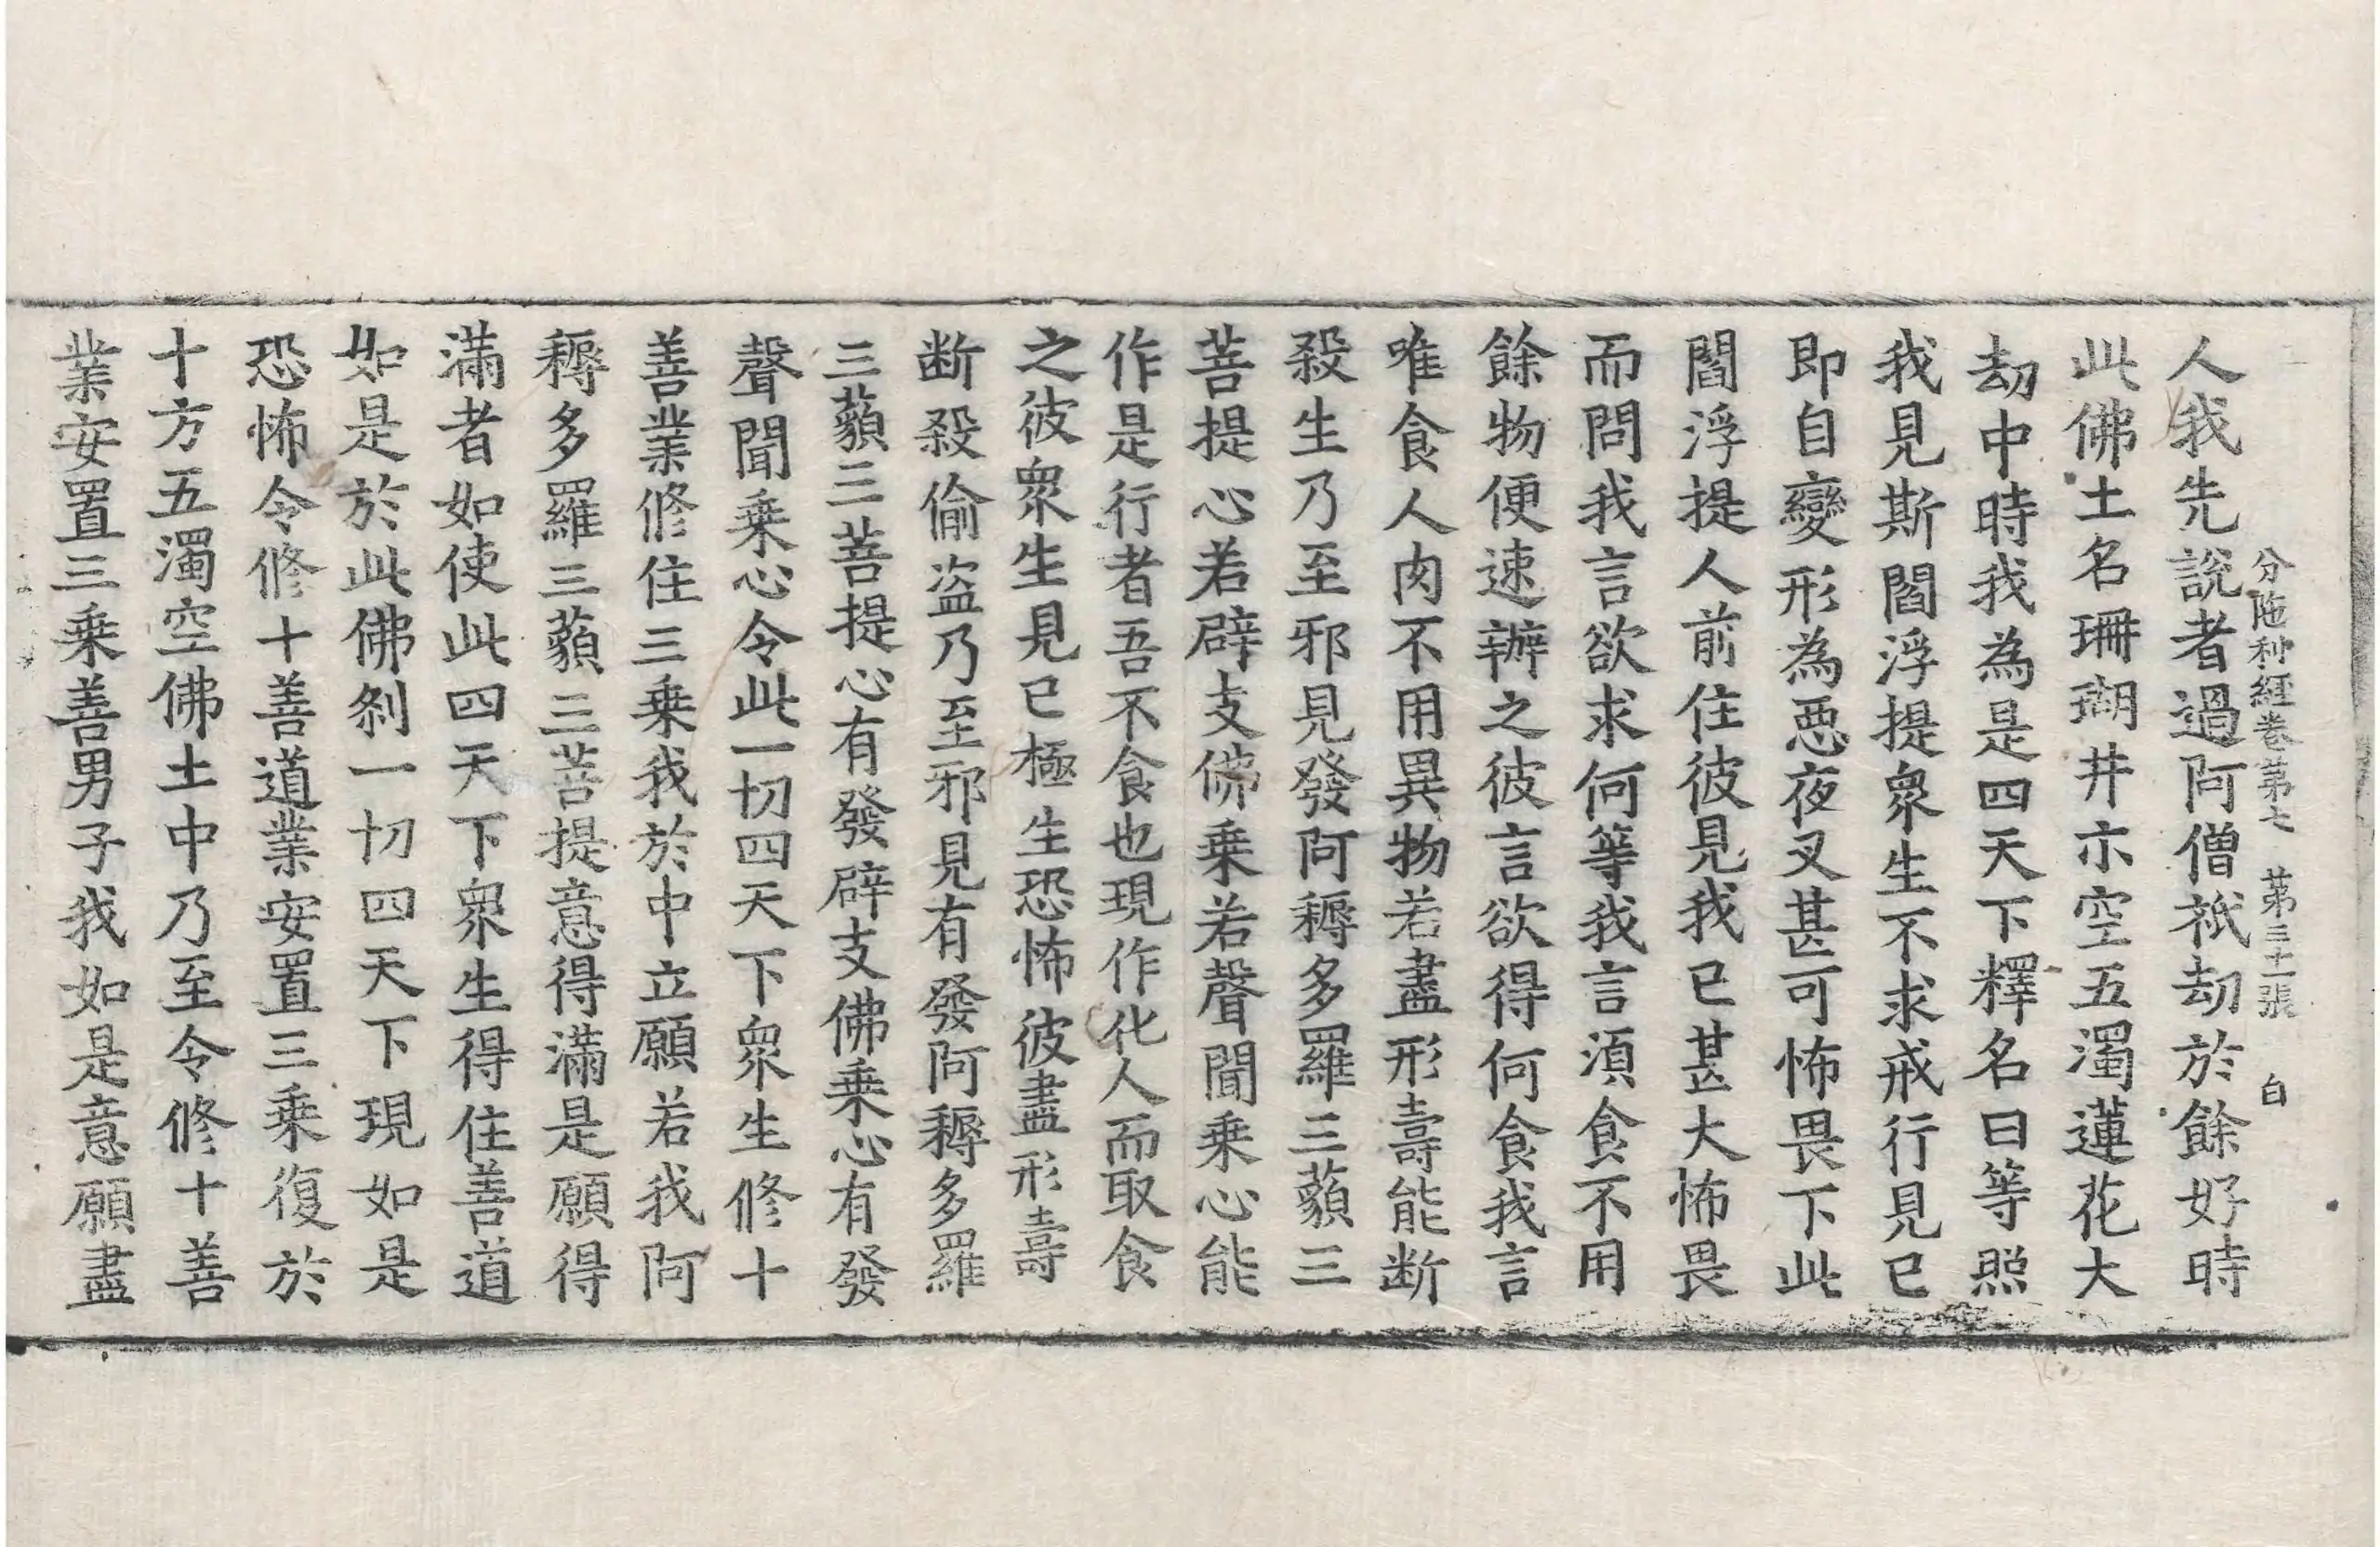 分陁利經卷第七 第三十一張 白
人我先說者過阿僧祇劫於餘好時
此佛土名珊瑚井亦空五濁蓮花大
劫中時我為是四天下釋名曰等照
我見斯閻浮提衆生不求戒行見已
即自變形為惡夜叉甚可怖畏下此
閻浮提人前住彼見我已甚大怖畏
而問我言欲求何等我言湏食不用
餘物便速辦之彼言欲得何食我言
唯食人肉不用異物若盡形壽能断
殺生乃至邪見發阿耨多羅三藐三
菩提心若辟支佛乗若聲聞乗心能
作是行者吾不食也現作化人而取食
之彼衆生見已極生恐怖彼盡形壽
断殺偷盗乃至邪見有發阿耨多羅
三藐三菩提心有發辟支佛乗心有發
聲聞乗心令此一切四天下衆生修十
善業修住三乗我於中立願若我阿
耨多羅三藐三菩提意得滿是願得
滿者如使此四天下衆生得住善道
如是於此佛剎一切四天下現如是
恐怖令修十善道業安置三乗復於
十方五濁空佛土中乃至令修十善
業安置三乗善男子我如是意願盡